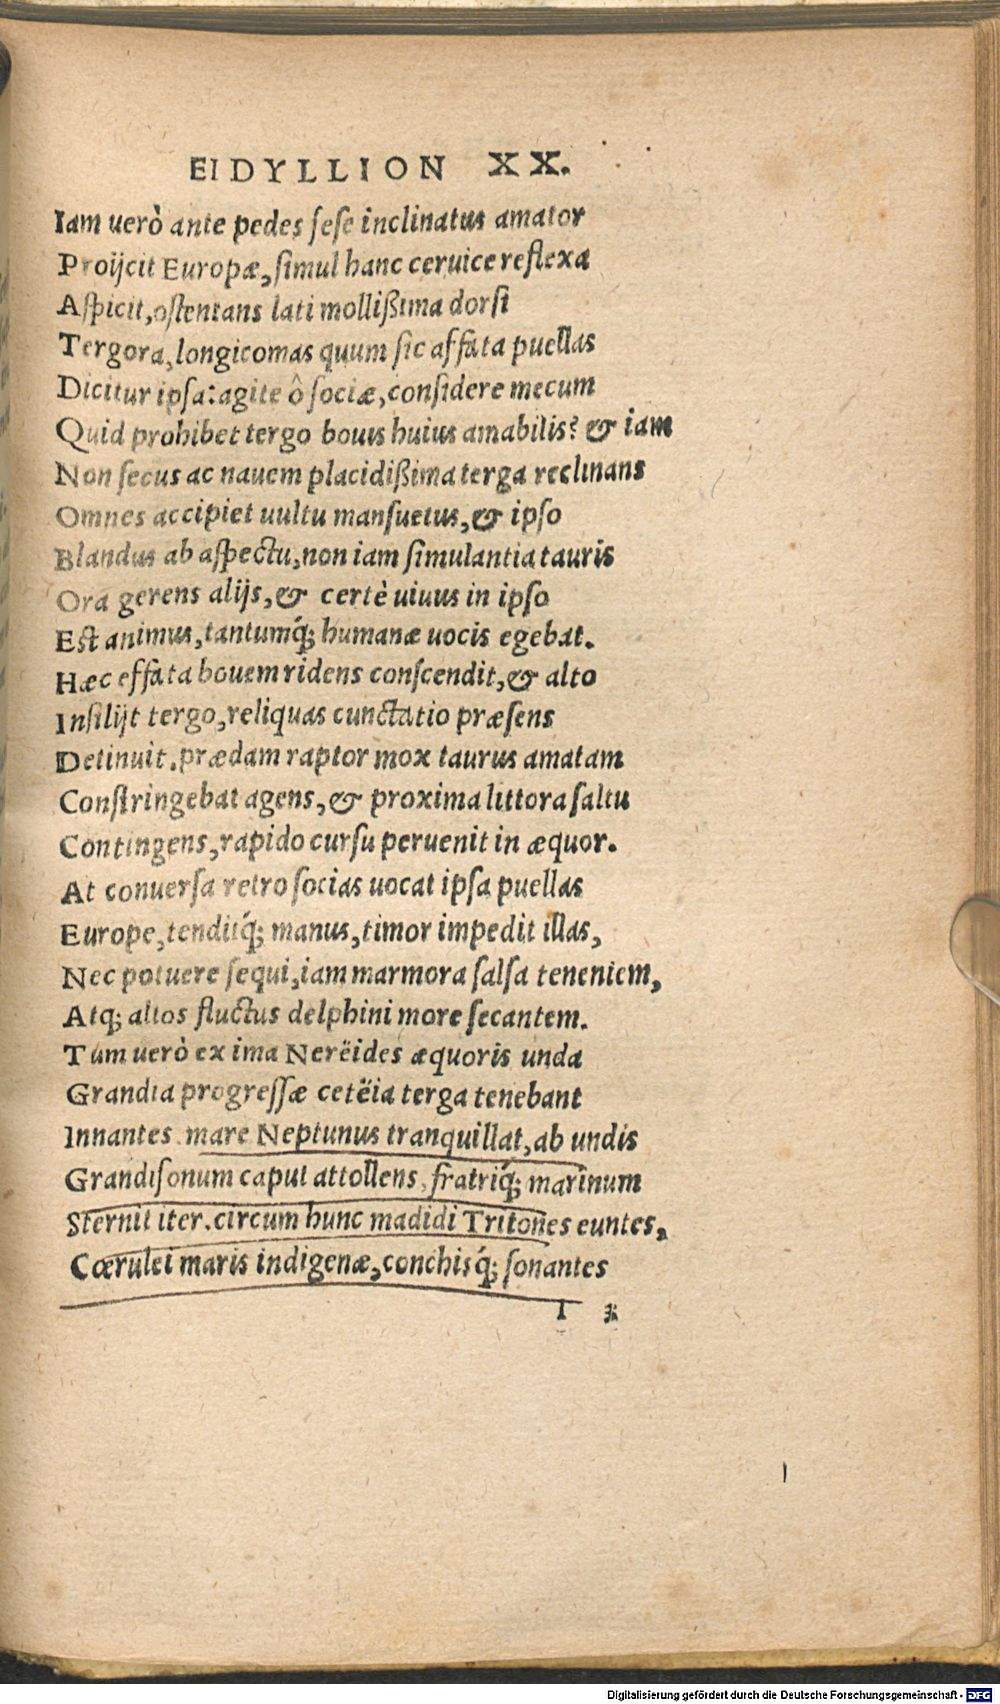 EIDYLLION XX.
Iam uerò ante pedes sese inclinatus amator
Proijcit Europæ, simul hanc ceruice reflexa
Aspicit, ostentans lati mollißima dorsi
Tergora, longicomas quum sic affata puellas
Dicitur ipsa: agite ô sociæ, considere mecum
Quid prohibet tergo bouis huius amabilis? & iam
Non secus ac nauem placidißima terga reclinans
Omnes accipiet uultu mansuetus, & ipso
Blandus ab aspectu, non iam simulantia tauris
Ora gerens alijs, & certè uiuus in ipso
Est animus, tantumq́; humanæ uocis egebat.
Hæc effata bouem ridens conscendit, & alto
Insilijt tergo, reliquas cunctatio præsens
Detinuit. prædam raptor mox taurus amatam
Constringebat agens, & proxima littora saltu
Contingens, rapido cursu peruenit in æquor.
At conuersa retro socias uocat ipsa puellas
Europe, tenditq́; manus, timor impedit illas,
Nec potuere sequi, iam marmora salsa tenentem,
Atq; altos fluctus delphini more secantem.
Tum uerò ex ima Nerëides æquoris unda
Grandia progressæ cetëia terga tenebant
Innantes. mare Neptunus tranquillat, ab undis
Grandisonum caput attollens, fratriq́; marinum
Sternit iter. circum hunc madidi Tritones euntes,
Cœrulei maris indigenæ, conchisq́; sonantes
I 3
Digitalisierung gefördert durch die Deutsche Forschungsgemeinschaft - DFG